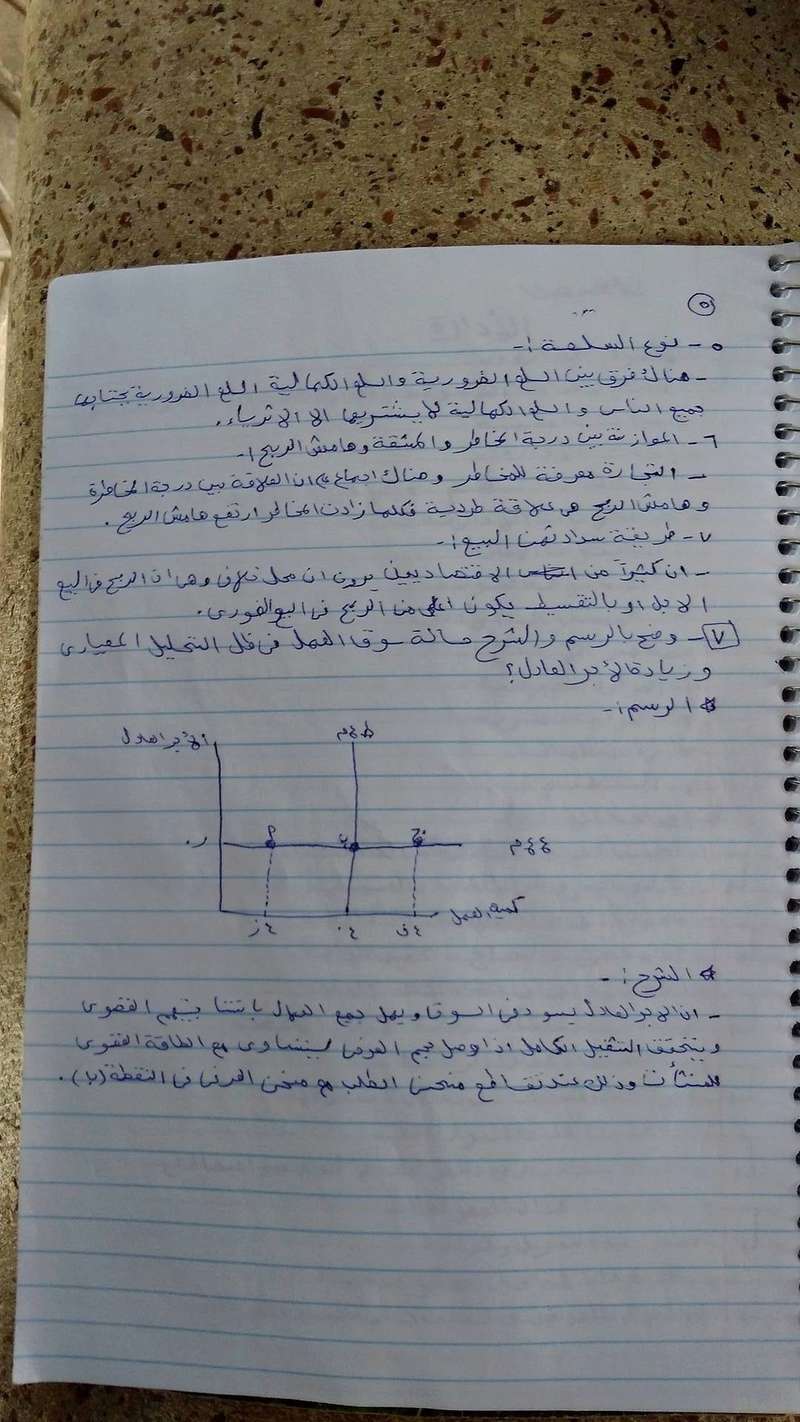 ٥
٥- نوع السلعة :-
- هناك فرق بين السلع الضرورية والسلع الكمالية السلع الضرورية يحتاجها
جميع الناس والسلع الكمالية لا يشتريها الا الاثرياء.
٦- الموازنة بين درجة المخاطر والمشقة وهامش الربح :-
- التجارة معرضة للمخاطر وهناك اجماع على ان العلاقة بين درجة المخاطرة
وهامش الربح هى علاقة طردية فكلما زادت المخاطر ارتفع هامش الربح.
٧- طريقة سداد ثمن البيع :-
- ان كثيرآ من الاقتصاديين يرون ان محل خلاف وهى ان الربح فى البيع
الاجل او بالتقسيط يكون اعلى من الربح فى البيع الفورى.
٧- وضح بالرسم والشرح حالة سوق العمل فى ظل التحليل المعيارى
وزيادة الأجر العادل؟
* الرسم :-
الأجر العادل
ط ع م
ر.
أ
ب
ج
ع ع م
ع ز
ع.
ع ف
كمية العمل
* الشرح :-
- ان الاجر العادل يسود فى السوق ويعمل جميع العمال بانتاجيتهم القصوى
ويتحقق التشغيل الكامل اذا وصل حجم العرض ليتساوى مع الطاقة القصوى
للمنشأت وذلك عند تقاطع منحنى الطلب مع منحنى العرض فى النقطة (ب).